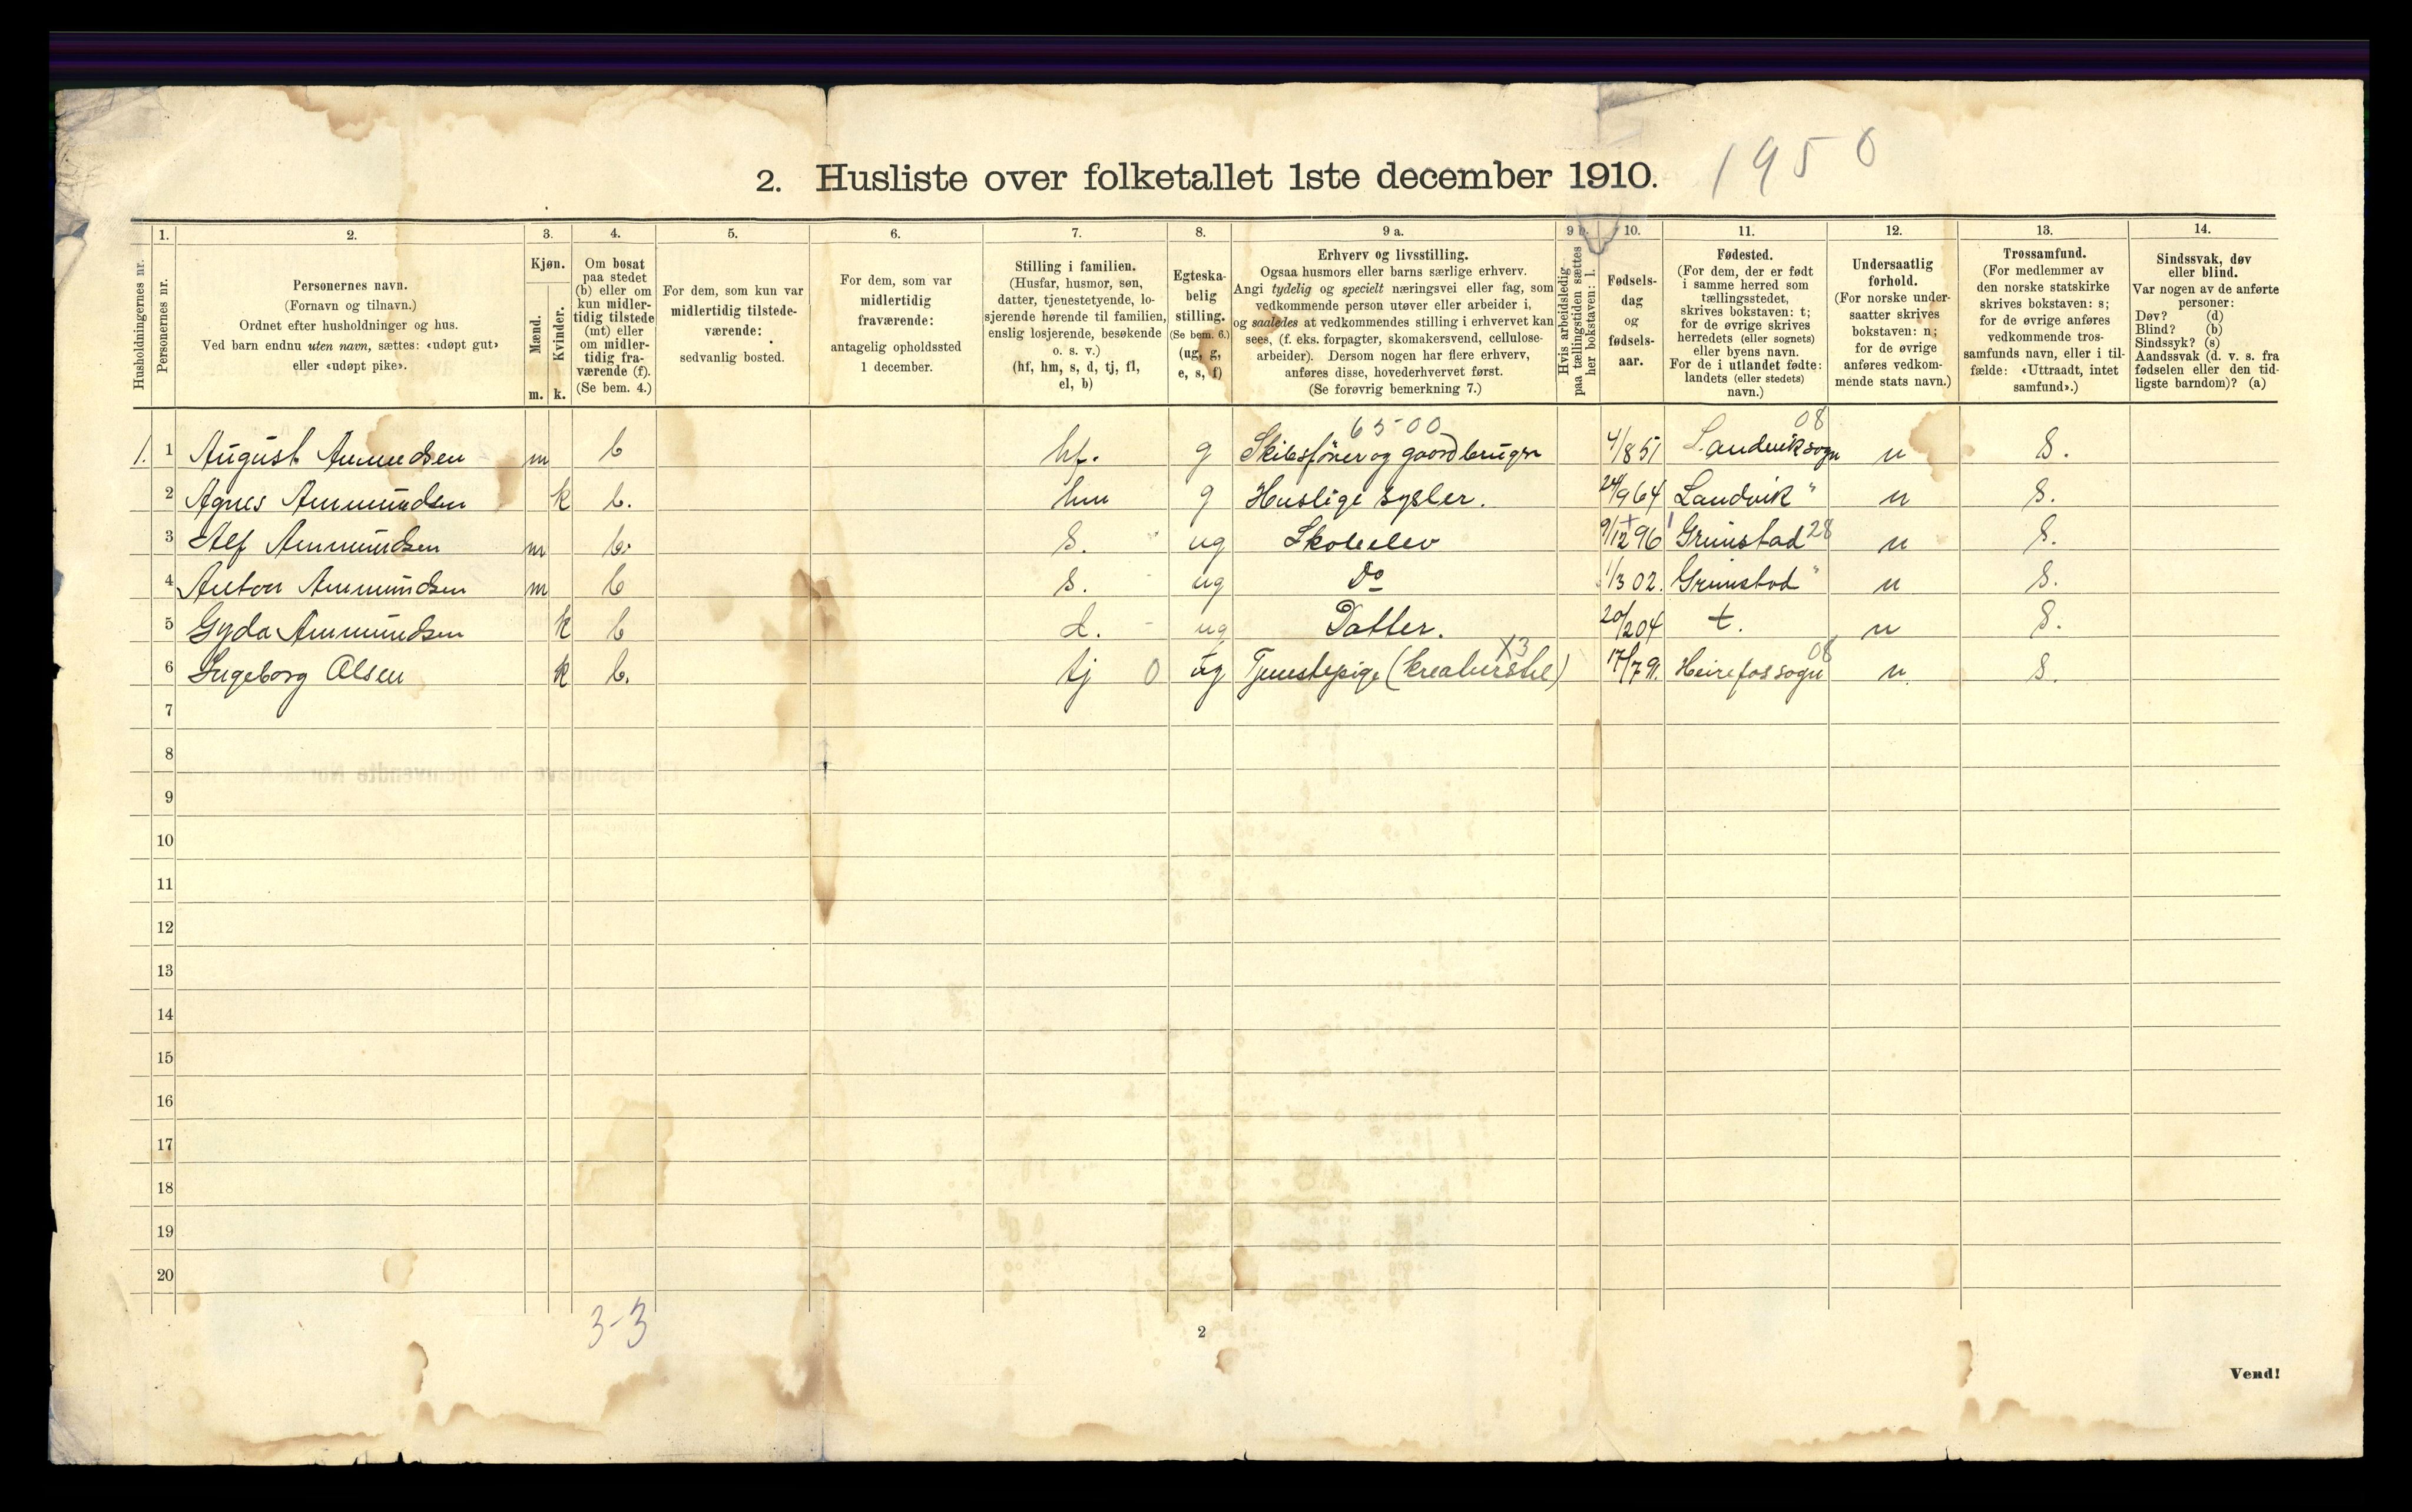 2. Husliste over folketallet 1ste december 1910. 1950
Husholdningernes nr.
1.
Personernes nr.
2.
Personernes navn.
(Fornavn og tilnavn.)
Ordnet efter husholdninger og hus.
Ved barn endnu uten navn, sættes: «udøpt gut»
eller «udøpt pike».
3.
Kjøn.
Mænd.
Kvinder.
m. k.
4.
Om bosat
paa stedet
(b) eller om
kun midler-
tidig tilstede
(mt) eller
om midler-
tidig fra-
værende (f).
(Se bem. 4.)
5.
For dem, som kun var
midlertidig tilstede-
værende:
sedvanlig bosted.
6.
For dem, som var
midlertidig
fraværende:
antagelig opholdssted
1 december.
7.
Stilling i familien.
(Husfar, husmor, søn,
datter, tjenestetyende, lo-
sjerende hørende til familien,
enslig losjerende, besøkende
o. s. v.)
(hf, hm, s, d, tj, fl,
el, b)
8.
Egteska-
belig
stilling.
(Se bem. 6.)
(ug, g,
e, s, f)
9 a.
Erhverv og livsstilling.
Ogsaa husmors eller barns særlige erhverv.
Angi tydelig og specielt næringsvei eller fag, som
vedkommende person utøver eller arbeider i,
og saaledes at vedkommendes stilling i erhvervet kan
sees, (f. eks. forpagter, skomakersvend, cellulose-
arbeider). Dersom nogen har flere erhverv,
anføres disse, hovederhvervet først.
(Se forøvrig bemerkning 7.)
9 b.
Hvis arbeidsledig
paa tællingstiden sættes
her bokstaven: l.
10.
Fødsels-
dag
og
fødsels-
aar.
11.
Fødested.
(For dem, der er født
i samme herred som
tællingsstedet,
skrives bokstaven: t;
for de øvrige skrives
herredets (eller sognets)
eller byens navn.
For de i utlandet fødte:
landets (eller stedets)
navn.)
12.
Undersaatlig
forhold.
(For norske under-
saatter skrives
bokstaven: n;
for de øvrige
anføres vedkom-
mende stats navn.)
13.
Trossamfund.
(For medlemmer av
den norske statskirke
skrives bokstaven: s;
for de øvrige anføres
vedkommende tros-
samfunds navn, eller i til-
fælde: «Uttraadt, intet
samfund».)
14.
Sindssvak, døv
eller blind.
Var nogen av de anførte
personer:
Døv? (d)
Blind? (b)
Sindssyk? (s)
Aandssvak (d. v. s. fra
fødselen eller den tid-
ligste barndom)? (a)
6500 08
1. 1 August Ammundsen m b hf. g Skibsfører og gaardbruger 4/8 51 Landviksogn n S.
2 Agnes Ammundsen k b. hm g Huslige sysler. 24/9 64 Landvik " n S.
3 Alf Ammundsen m b. S. ug Skoleelev 9/12 96 Grimstad 28 n S.
4 Anton Ammundsen m b s. ug Do 1/3 02. Grimstad " n S.
5 Gyda Ammundsen k b d. ug Datter. 20/2 04 t. n S.
X3 08
6 Ingeborg Olsen k b. tj 0 ug Tjenestepige (kreaturstel) 17/7 91. Heirefossogn n S.
7
8
9
10
11
12
13
14
15
16
17
18
19
20
3-3
2
Vend!